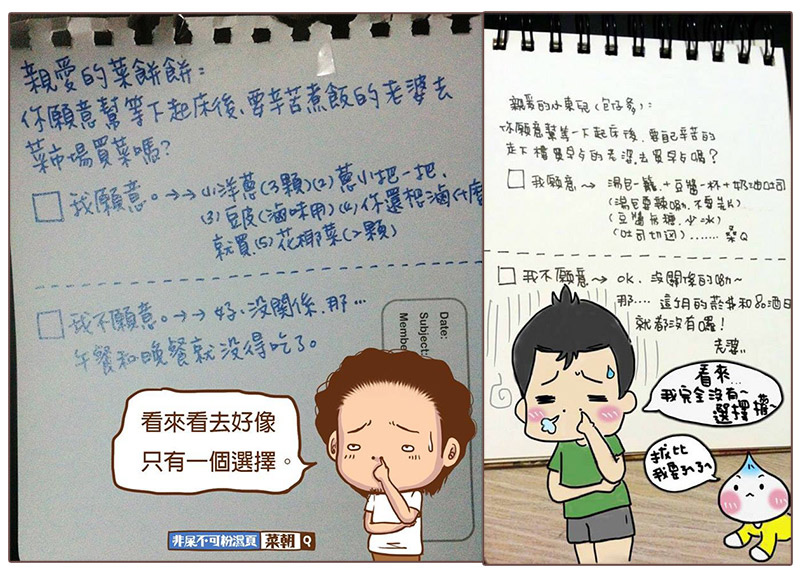 親愛的菜餅餅：
你願意幫等下起床後、要辛苦煮飯的老婆去
菜市場買菜嗎？
我願意。→→(1)洋蔥(3顆)(2)蔥小把一把、
(3)豆皮(滷味用)(4)你還想滷什麼
就買、(5)花椰菜(2顆)
我不願意。→→好、沒關係、那…
午餐和晚餐就沒得吃了。
Date:
Subject:
Membe
看來看去好像
只有一個選擇。
非屎不可粉濕頁 菜朝 Q
親愛的小東兒(包仔爹)：
你願意幫等一下起床後、要自己辛苦的
走下樓買早点的老婆、去買早点嗎？
我願意→湯包一籠.+豆醬一杯+奶油吐司
(豆醬無糖.少冰)
(吐司切边)…….桑Q
我不願意→ok.沒關係的呦~
那….這個月的菸錢和品酒日
就都沒有囉！
老婆..
看來…
我完全沒有~
選擇權~
拔比
我要ㄋㄟㄋㄟ